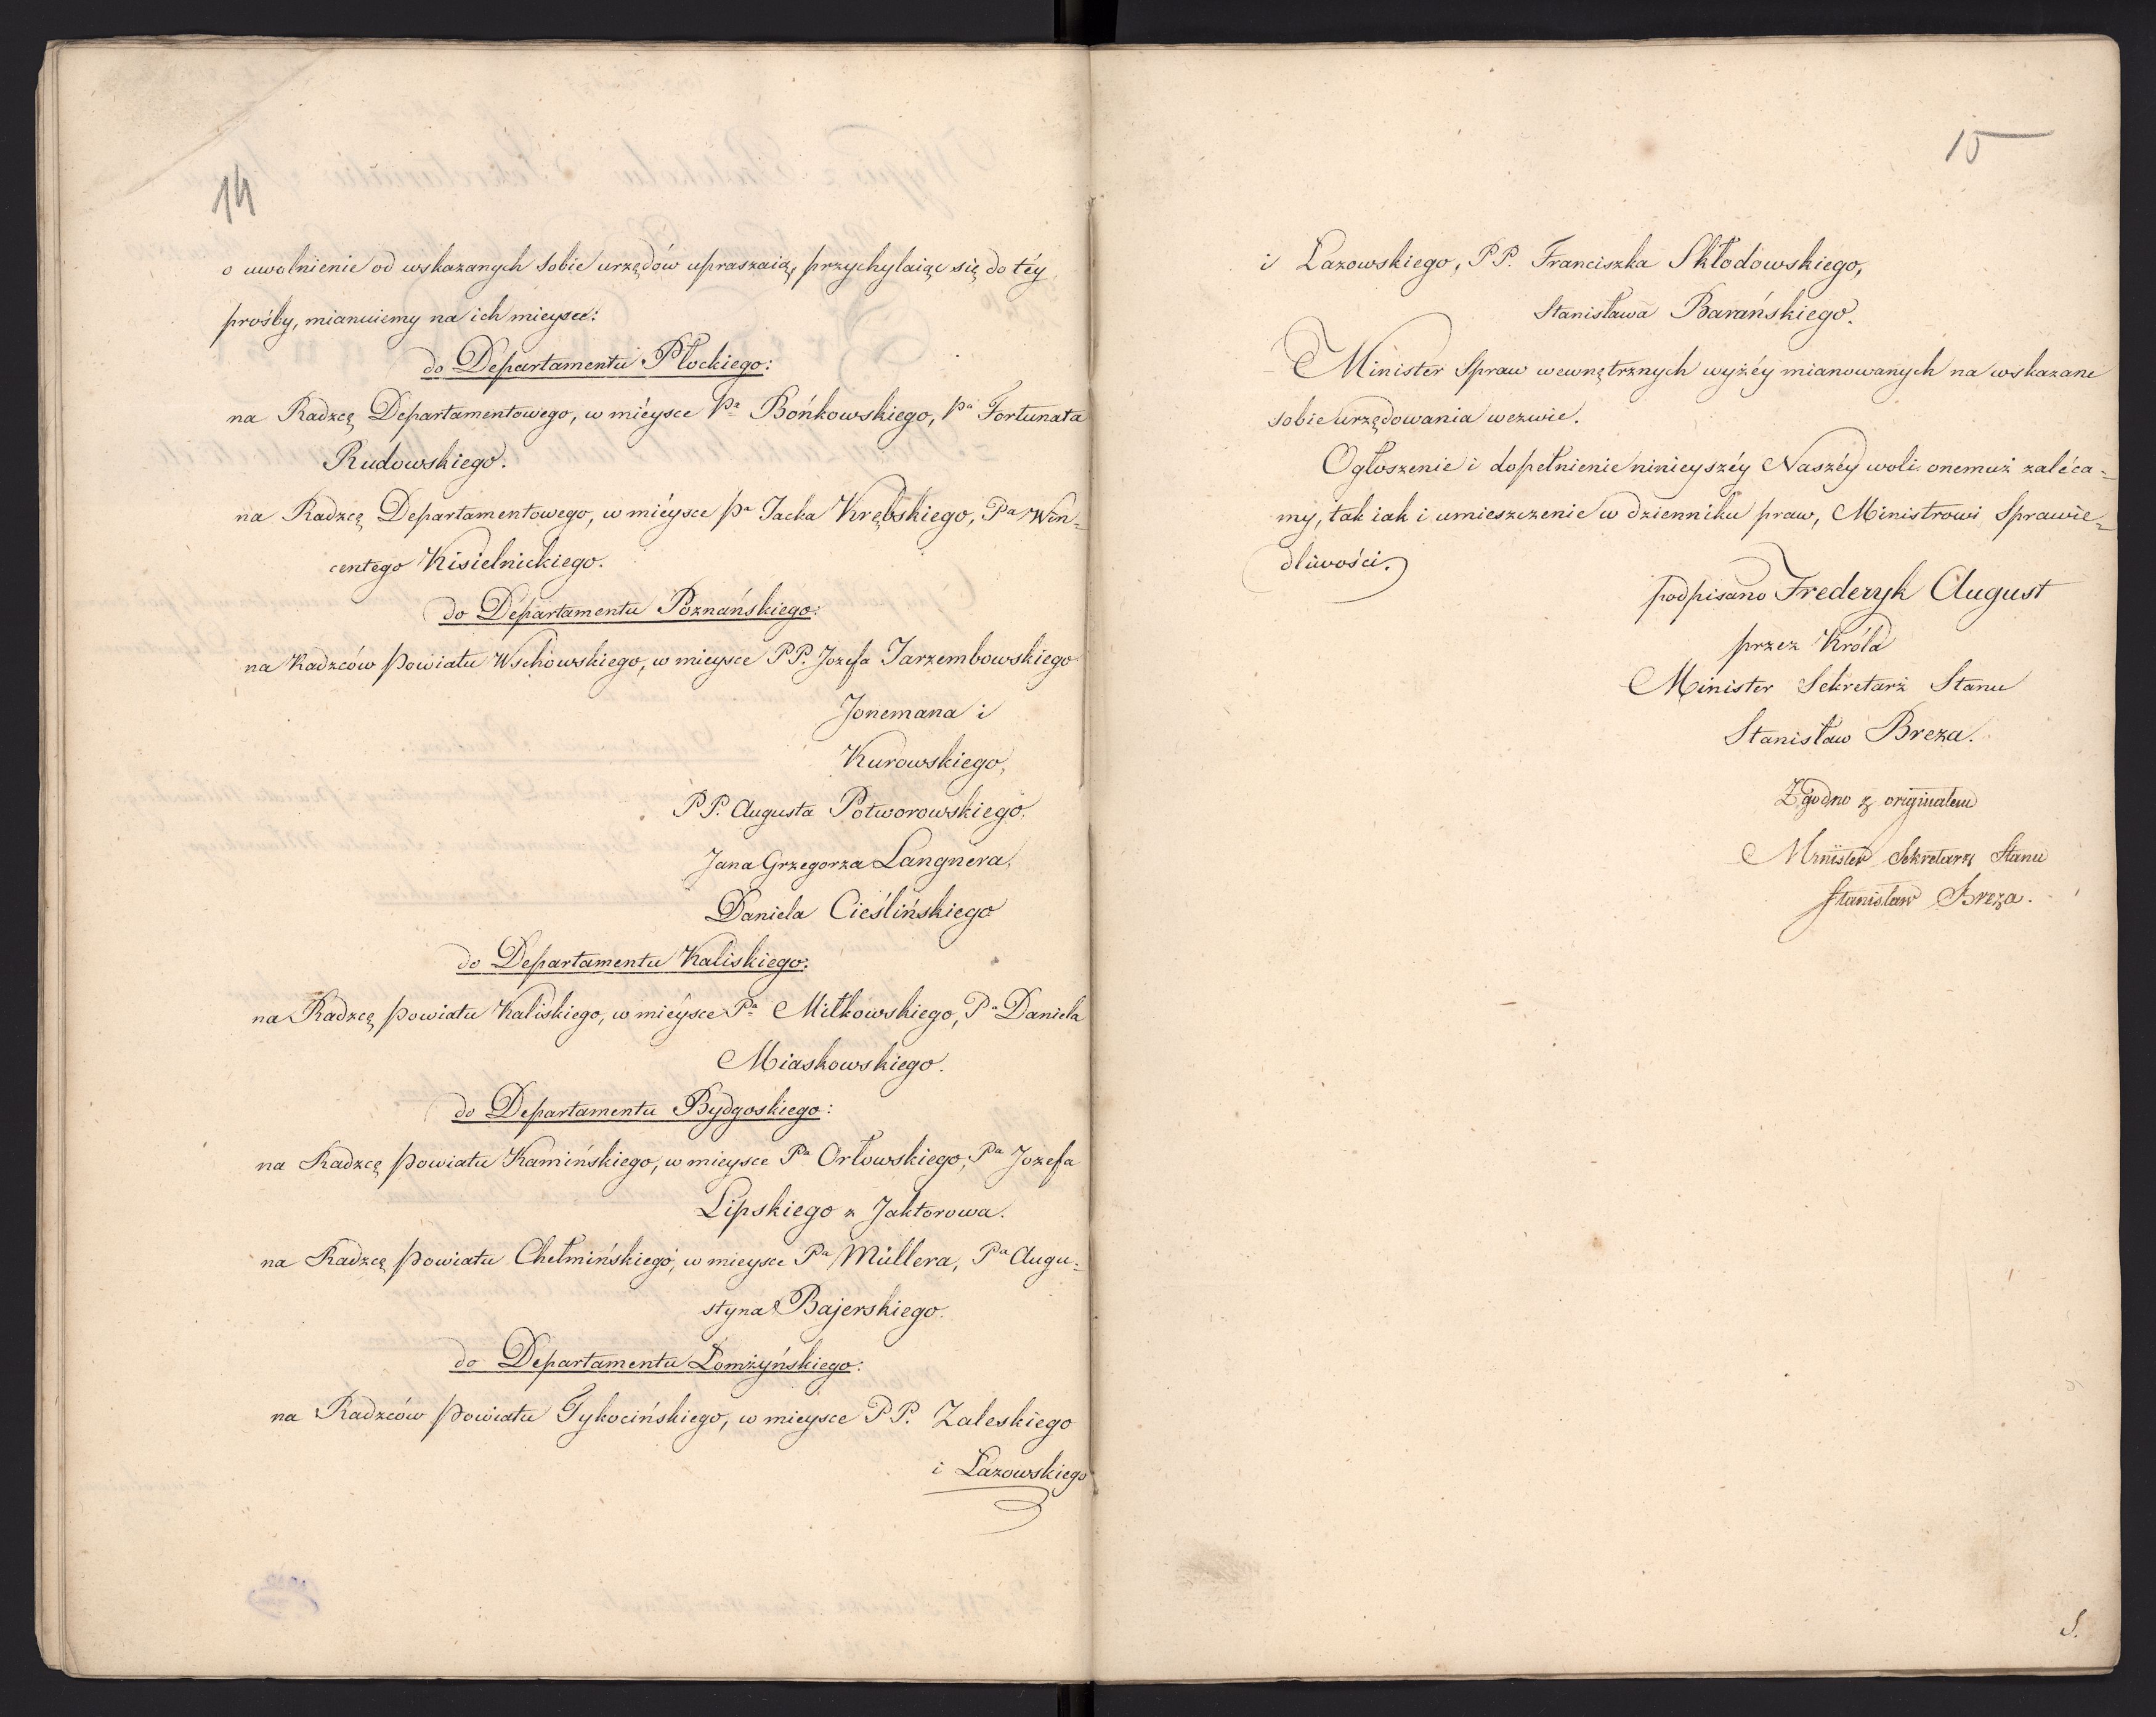 14
o uwolnienie od wskazanych sobie urzędów upraszaią, przychylaiąc się do téy
prośby, mianuiemy na ich mieysce:
do Departamentu Płockiego:
na Radzcę Departamentowego, w miéysce Pa Bońkowskiego, Pa Fortunata
Rudowskiego.
na Radzcę Departamentowego, w miéysce Pa Jacka Krębskiego, Pa Win=
centego Kisielnickiego.
do Departamentu Poznańskiego:
na Radzców Powiatu Wschowskiego, w mieysce PP. Jozefa Jarzembowskiego
Jonemana i
Kurowskiego,
PP. Augusta Potworowskiego,
Jana Grzegorza Langnera,
Daniela Cieślińskiego
do Departamentu Kaliskiego:
na Radzcę Powiatu Kaliskiego, w miéysce Pa Miłkowskiego, Pa Daniela
Miaskowskiego.
do Departamentu Bydgoskiego:
na Radzcę Powiatu Kamińskiego, w mieysce Pa Orłowskiego, Pa Jozefa
Lipskiego z Jaktorowa.
na Radzcę Powiatu Chełmińskiego, w mieysce Pa Müllera, Pa Augu=
styna Bajerskiego.
do Departamentu Łomżyńskiego:
na Radzców Powiatu Tykocińskiego, w mieysce PP. Zaleskiego
i Łazowskiego
15
i Łazowskiego, PP. Franciszka Skłodowskiego,
Stanisława Barańskiego.
Minister Spraw wewnętrznych wyżéy mianowanych na wskazane
sobie urzędowania wezwie.
Ogłoszenie i dopełnienie ninieyszéy Naszéy woli onemuż zaléca=
my, tak iak i umieszczenie w dzienniku praw, Ministrowi Sprawie=
dliwości.
podpisano Frederyk August
przez Króla
Minister Sekretarz Stanu
Stanisław Breza.
Zgodno z originałem
Minister Sekretarz Stanu
Stanisław Breza.
S.